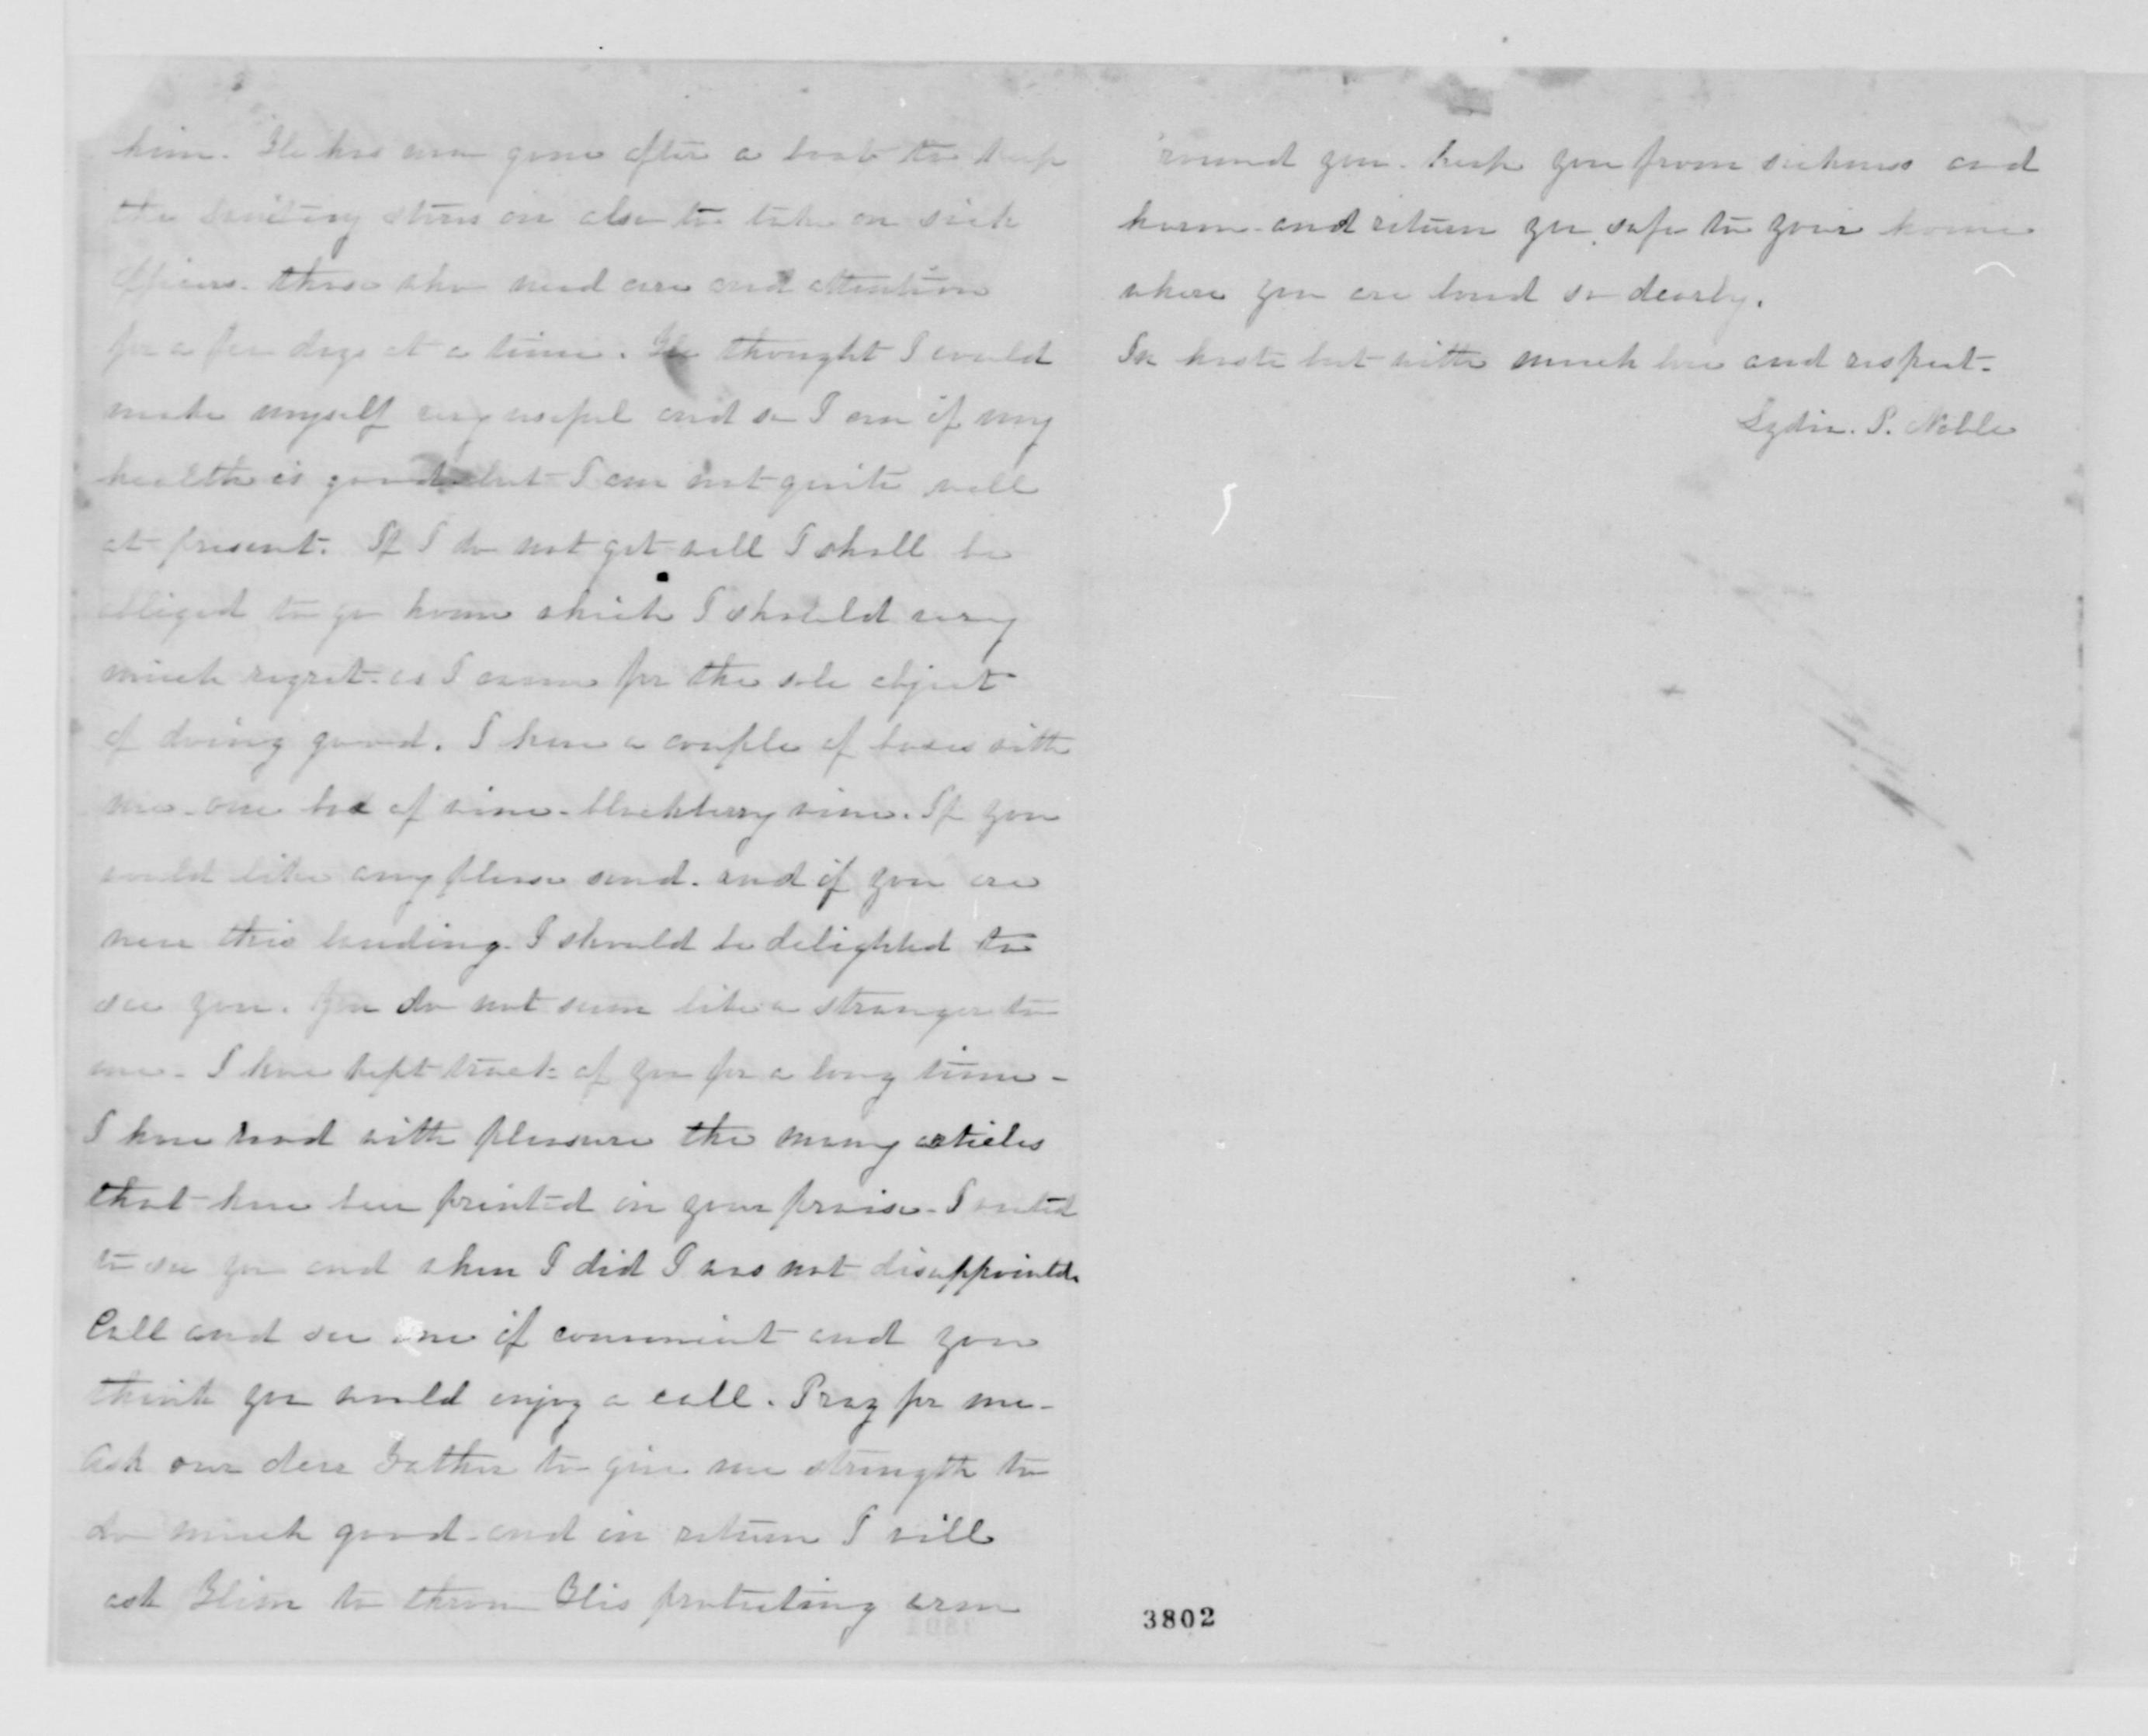 him. He has now gone after a boat to keep
the sanitary stores on also to take on sick
officers. those who need care and attention
for a few days at a time. He thought I could
make myself very useful and so I can if my
health is good but I am not quite well
at present. If I do not get well I shall be
obliged to go home which I should very
much regret. as I came for the sole object
of doing good. I have a couple of boxes with
me. one box of wine. blackberry wine. If you
would like any please send. and if you are
near this landing. I should be delighted to
see you. You do not seem like a stranger to
me. I have kept track of you for a long time -
I have read with pleasure the many articles
that have been printed in your praise. I wanted
to see you and when I did I was not disappointed.
Call and see me if convenient and you
think you would enjoy a call. Pray for me -
Ask our dear Father to give me strength to
do much good. and in return I will
ask Him to throw His protecting arm
'round you. keep you from sickness and
harm. and return you safe to your home
where you are loved so dearly.
In haste but with much love and respect -
Lydia. P. Noble
3802